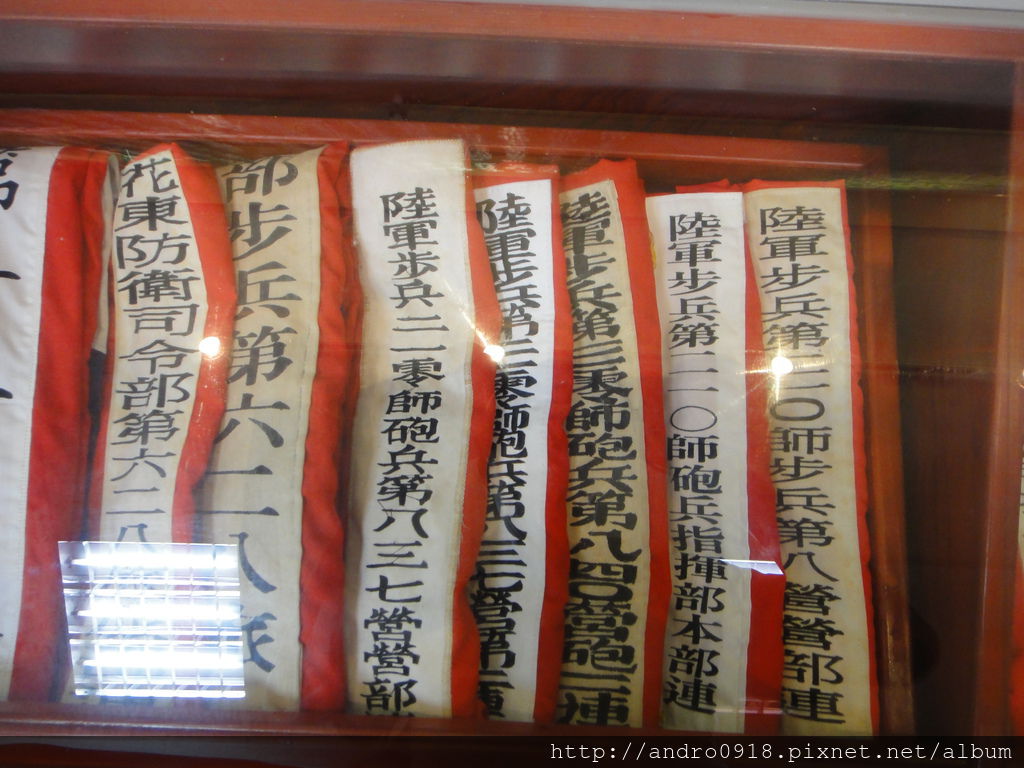 陸軍步兵第二一〇師步兵第八營營部連
陸軍步兵第二一〇師砲兵指揮部本部連
陸軍步兵第二一零師砲兵第八四〇營砲三連
陸軍步兵第二一零師砲兵第八三七營第二連
陸軍步兵二一零師砲兵第八三七營營部
部步兵第六二八旅
花東防衛司令部第六二八
http://andro0918.pixnet.net/album